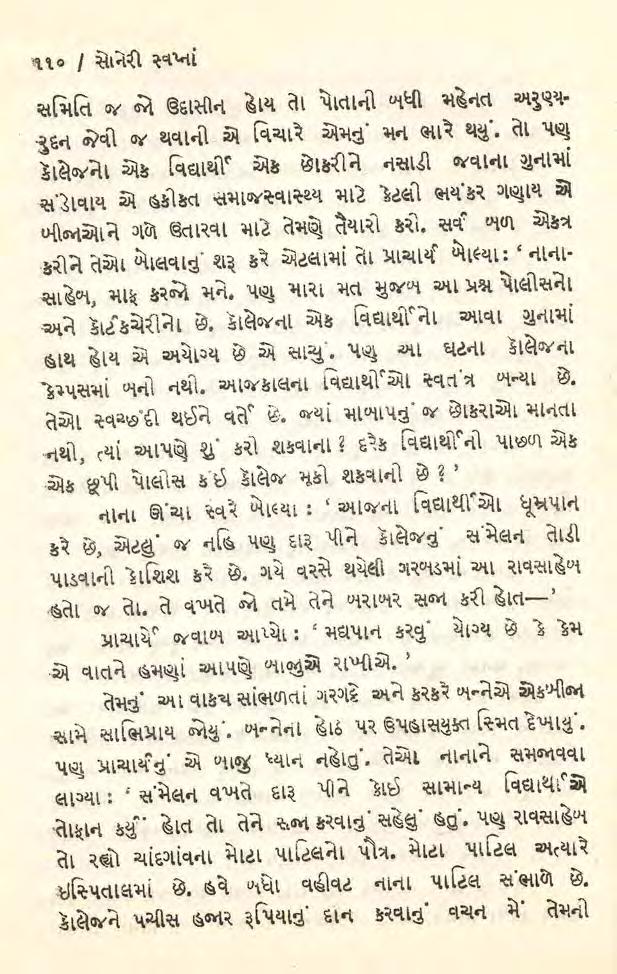 ૧૧૦ / સોનેરી સ્વપ્નાં
સમિતિ જ જો ઉદાસીન હોય તો પોતાની બધી મહેનત અરુણ્ય-
રુદન જેવી જ થવાની એ વિચારે એમનું મન ભારે થયું. તો પણ
કૉલેજનો એક વિદ્યાર્થી એક છોકરીને નસાડી જવાના ગુનામાં
સંડોવાય એ હકીકત સમાજસ્વાસ્થ્ય માટે કેટલી ભયંકર ગણાય એ
બીજાઓને ગળે ઉતારવા માટે તેમણે તૈયારી કરી. સર્વ બળ એકત્ર
કરીને તેઓ બોલવાનું શરૂ કરે એટલામાં તો પ્રાચાર્ય બોલ્યા: ‘ નાના-
સાહેબ, માફ કરજો મને. પણ મારા મત મુજબ આ પ્રશ્ન પોલીસનો
અને કૉર્ટકચેરીનો છે. કૉલેજના એક વિદ્યાર્થીનો આવા ગુનામાં
હાથ હોય એ અયોગ્ય છે એ સાચું. પણ આ ઘટના કૉલેજના
કેમ્પસમાં બની નથી. આજકાલના વિદ્યાર્થીઓ સ્વતંત્ર બન્યા છે.
તેઓ સ્વચ્છંદી થઈને વર્તે છે. જ્યાં માબાપનું જ છોકરાઓ માનતા
નથી, ત્યાં આપણે શું કરી શકવાના ? દરેક વિદ્યાર્થીની પાછળ એક
એક છૂપી પોલીસ કંઈ કૉલેજ મૂકી શકવાની છે ? ’
નાના ઊંચા સ્વરે બોલ્યા : ‘ આજના વિદ્યાર્થીઓ ધૂમ્રપાન
કરે છે, એટલું જ નહિ પણ દારૂ પીને કૉલેજનું સંમેલન તોડી
પાડવાની કોશિશ કરે છે. ગયે વરસે થયેલી ગરબડમાં આ રાવસાહેબ
હતો જ તો. તે વખતે જો તમે તેને બરાબર સજા કરી હોત—’
પ્રાચાર્યે જવાબ આપ્યો : ‘ મદ્યપાન કરવું યોગ્ય છે કે કેમ
એ વાતને હમણાં આપણે બાજુએ રાખીએ. ’
તેમનું આ વાક્ય સાંભળતાં ગરગટ્ટે અને કરકરે બન્નેએ એકબીજા
સામે સાભિપ્રાય જોયું. બન્નેના હોઠ પર ઉપહાસયુક્ત સ્મિત દેખાયું.
પણ પ્રાચાર્યનું એ બાજુ ધ્યાન નહોતું. તેઓ નાનાને સમજાવવા
લાગ્યા : ‘ સંમેલન વખતે દારૂ પીને કોઈ સામાન્ય વિદ્યાર્થીએ
તોફાન કર્યું હોત તો તેને સજા કરવાનું સહેલું હતું. પણ રાવસાહેબ
તો રહ્યો ચાંદગાંવના મોટા પાટિલનો પૌત્ર. મોટા પાટિલ અત્યારે
ઇસ્પિતાલમાં છે. હવે બધો વહીવટ નાના પાટિલ સંભાળે છે.
કૉલેજને પચીસ હજાર રૂપિયાનું દાન કરવાનું વચન મેં તેમની